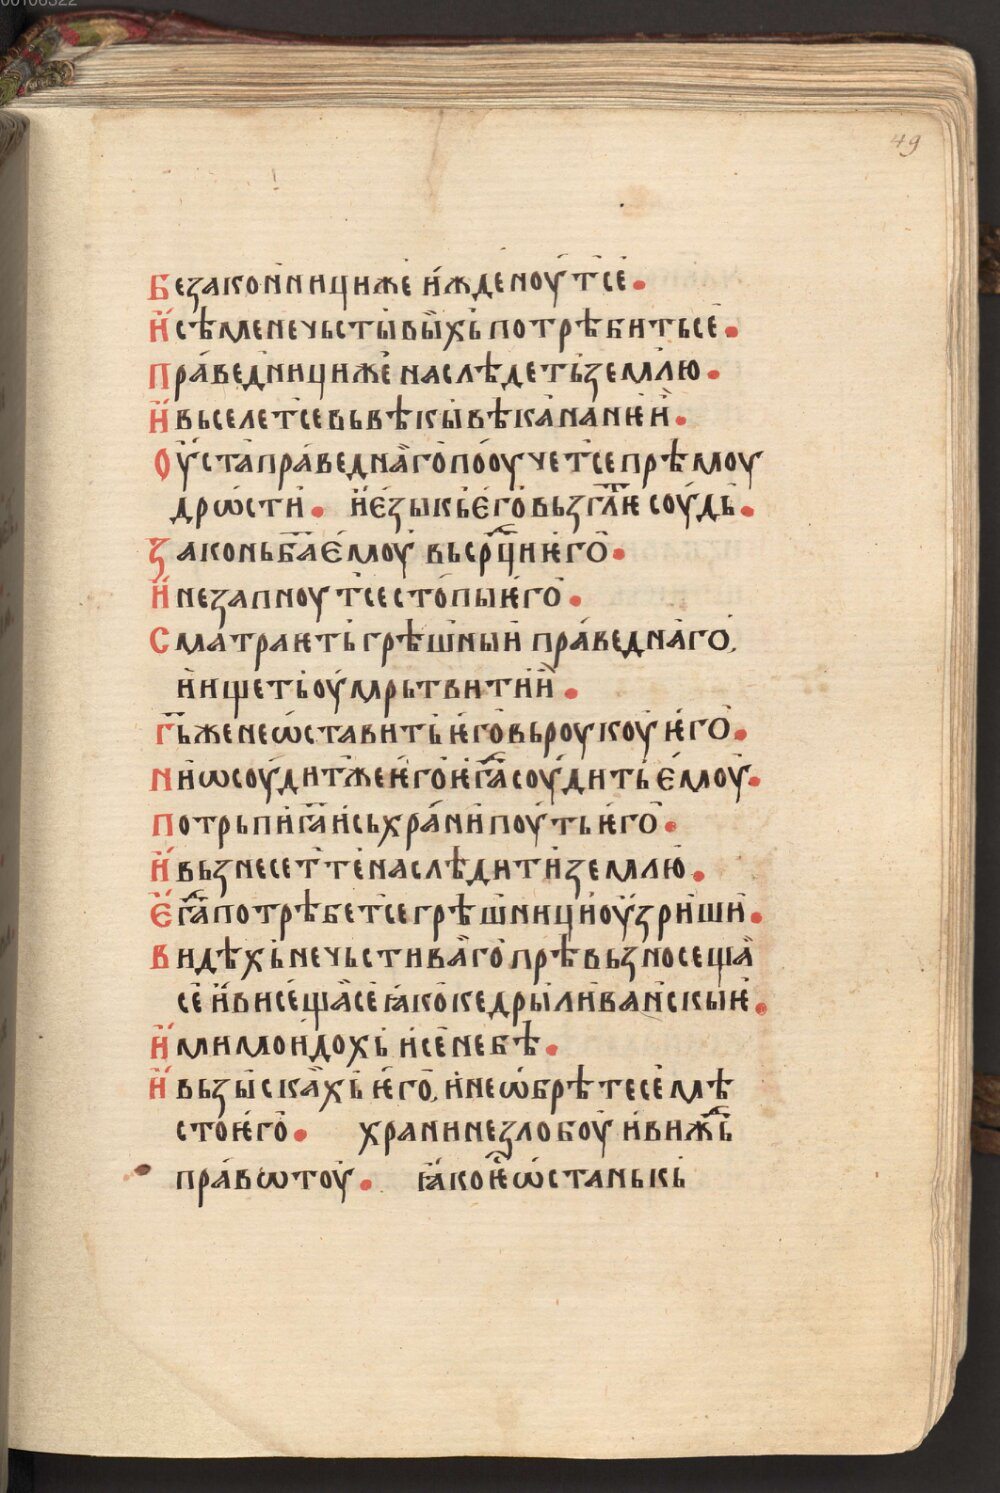 00106322
49
Безакон҄ници же и҆жденоу́т се •
И҆ сѣмене чьсты́вы̑хь потрѣбить се •
Пра́ведници же наслѣдеть землю •
И҆ вьселет се вь вѣкы вѣка на нѥи •
Оу҆ста пра́веднаго пооучет се прѣмоу
дрѡсти • и҆ е҆зыкь е҆го вьзгл҃ѥ соу́дь •
Законь б҃а е҆моу вь ср҃ци ѥго •
И҆ не запноут се стопы ѥго •
Сматраѥть грѣшныи пра́веднаго,
и҆ ищеть оу҆мрьтвити и҆ •
Г҃ь же не ѡ҆ставить ѥго вь роукоу ѥго •
Ни ѡсоу́дит же ѥго ѥг҃а соу́дить е҆моу •
Потрьпи г҃а и сьхра́ни поу́ть ѥго •
И҆ вьзнесет те наслѣдити землю •
Е҆г҃а потрѣбет се грѣшници оу҆зриши •
Видѣхь нечьстиваго прѣвьзносеща
се и҆ висеща се ꙗко кедры ливан҄скыѥ •
И҆ мимоидохь и се не бѣ •
И҆ вьзыскахь ѥго, и не ѡ҆брѣте се мѣ
сто ѥго • храни незлобоу и виж҃ь
пра́вѡтоу • ꙗко ѥ҃ ѡ҆станькь